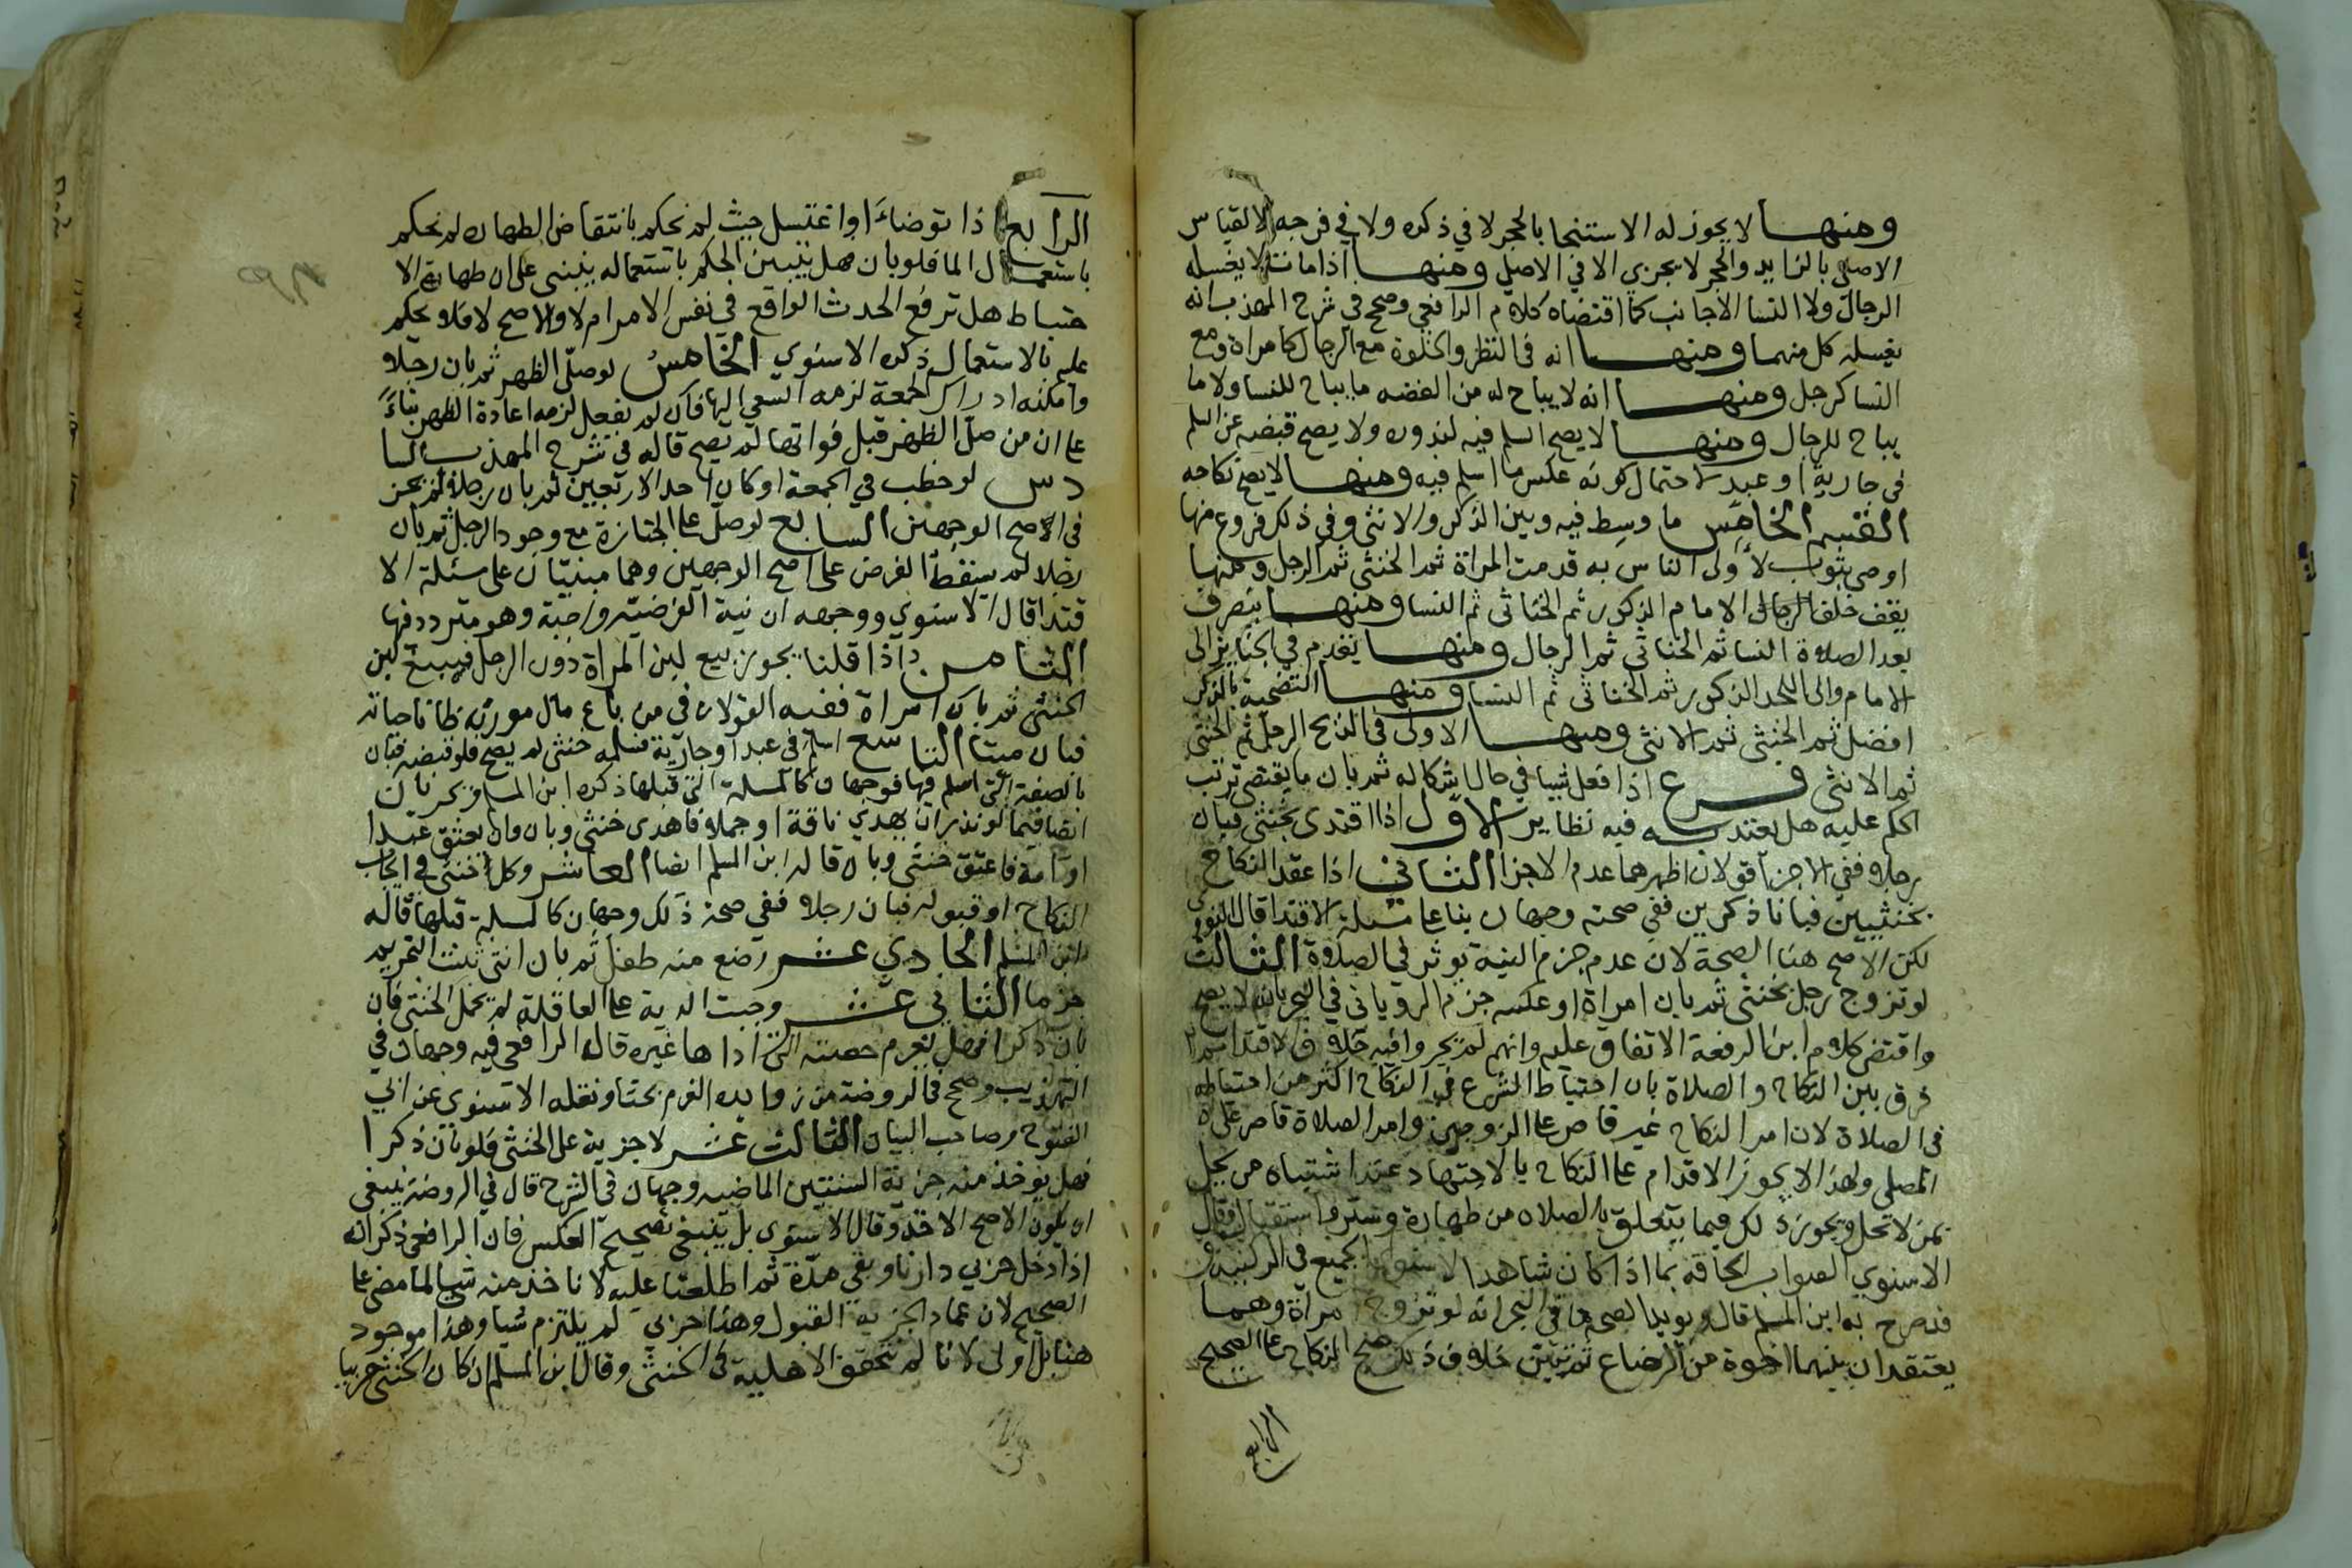 ومنها لا يجوز له الاستنجا بالحجر لا في ذكره ولا في فرجه لالقياس
الاصلي بالزايد والحجر لا يجزي الا في الاصل ومنها اذا مات لا يغسله
الرجال ولا النسا الاجانب كما اقتضاه كلام الرافعي وصحح في شرح المهذب انه
يغسله كل منهما ومنها انه في النظر والخلوة مع الرجال كامراة ومع
النسا كرجل ومنها انه لا يباح له من الفضه ما يباح للنسا ولا ما
يباح للرجال ومنها لا يصح السلم فيه لندوره ولا يصح قبضه عن السلم
في جارية او عبد لاحتمال كونه عكس ما اسلم فيه ومنها لا يصح نكاحه
القسم الخامس ما وسط فيه وبين الذكر والانثى وفي ذلك فروع منها
اوصى بثوب لاولى الناس به قدمت المراة ثم الخنثى ثم الرجل ومنها
يقف خلف الامام الذكور ثم الخناثى ثم النسا ومنها ينصرف
بعد الصلاة النسا ثم الخناثى ثم الرجال ومنها يقدم في الجنايز الى
الامام والى اللحد الذكور ثم الخناثى ثم النسا ومنها التضحية بالذكر
افضل ثم الخنثى ثم الانثى ومنها الاولى في الذبح الرجل ثم الخنثى
ثم الانثى فرع اذا فعل شيا في حال اشكاله ثم بان ما يقتضي ترتب
الحكم عليه هل يعتد به فيه نظاير الاول اذا اقتدى بخنثى فبان
رجلا ففي الاجزا قولان اظهرهما عدم الاجزا الثاني اذا عقد النكاح
بخنثيين فبانا ذكرين ففي صحته وجهان بنا على مسلة الاقتدا قال النووي
لكن الاصح هنا الصحة لان عدم جزم النية يوثر في الصلاة الثالث
لو تزوج رجل بخنثى ثم بان امراة او عكسه جزم الروياني في البحر بانه لا يصح
واقتضى كلام ابن الرفعة الاتفاق عليه وانهم لم يجروا فيه خلاف الاقتدا ثم
فرق بين النكاح والصلاة بان احتياط الشرع في النكاح اكثر من احتياطه
في الصلاة لان امر النكاح غير قاصر على الزوجين وامر الصلاة قاصر على
المصلي ولهذا لا يجوز الاقدام على النكاح بالاجتهاد عند اشتباه من يحل
بمن لا تحل ويجوز ذلك فيما يتعلق بالصلاه من طهارة وستر واستقبال وقال
الاسنوي الصواب الحاقه بما اذا كان شاهدا الجميع في الركنية
فدصرح به ابن المسلم قال ويويد الصحة ما في البحر انه لو تزوج امراة وهما
يعتقدان بينهما اخوة من الرضاع ثم تبين خلاف ذلك صح النكاح على الصحيح
الرابع
الرابع اذا توضاء او اغتسل حيث لم نحكم بانتقاض الطهاره لم نحكم
باستعمال الما فلو بان فهل يتبين الحكم باستعماله ينبني على ان طهارة الا
حتياط هل ترفع الحدث الواقع في نفس الامر ام لا والاصح لا فلا يحكم
عليه بالاستعمال ذكره الاسنوي الخامس لو صلى الظهر ثم بان رجلا
وامكنه ادراك الجمعة لزمه السعي اليها فان لم يفعل لزمه اعادة الظهر بناء
على ان من صلى الظهر قبل فواتها لم تصح قاله في شرح المهذب السا
دس لو خطب في الجمعة او كان احد الاربعين ثم بان رجلا لم يجز
في الاصح الوجهين السابع لو صلى على الجنازة مع وجود الرجل ثم بان
رجلا لم يسقط الفرض على اصح الوجهين وهما مبنيان على مسئلة الا
قتدا قال الاسنوي ووجهه ان نية الفرضية واجبة وهو متردد فيها
الثامن اذا قلنا يجوز بيع لبن المراة دون الرجل فبيع لبن
الخنثى ثم بان امراة ففيه القولان في من باع مال مورثه ظانا حياته
فبان ميتا التاسع اسلم في عبد او جارية فسلمه خنثى لم يصح فلو قبضه فبان
بالصفة التي اسلم فيها فوجهان كالمسلة التي قبلها ذكره ابن المسلم ويجريان
ايضا فيما لو نذر ان يهدي ناقة او جملا فاهدى خنثى وبان وان يعتق عبدا
او امة فاعتق خنثى وبان قاله ابن المسلم ايضا العاشر وكل خنثى في ايجاب
النكاح او قبوله فبان رجلا ففي صحة ذلك وجهان كالمسلة قبلها قاله
ابن المسلم الحادي عشر رضع منه طفل ثم بان انثى ثبت التحريم
جزما الثاني عشر وجبت الدية على العاقلة لم يحمل الخنثى فان
بان ذكرا فهل يغرم حصته التي اداها غيره قال الرافعي فيه وجهان في
التهذيب وصحح في الروضة من زوايده الغرم بحثا ونقله الاسنوي عن ابي
الفتوح وصاحب البيان الثالث عشر لا جزية على الخنثى فلو بان ذكرا
فهل يوخذ منه جزية السنتين الماضيه وجهان في الشرح قال في الروضة ينبغي
ان يكون الاصح الاخذ وقال الاسنوي بل ينبغي تصحيح العكس فان الرافعي ذكر انه
اذا دخل حربي دارنا وبقي مدة ثم اطلعنا عليه لا ناخذ منه شيا لما مضى على
الصحيح لان عماد الجزية القبول وهذا حربي لم يلتزم شيا وهذا موجود
هنا بل اولى لانا لم نتحقق الاهلية في الخنثى وقال ابن المسلم ان كان الخنثى حربيا